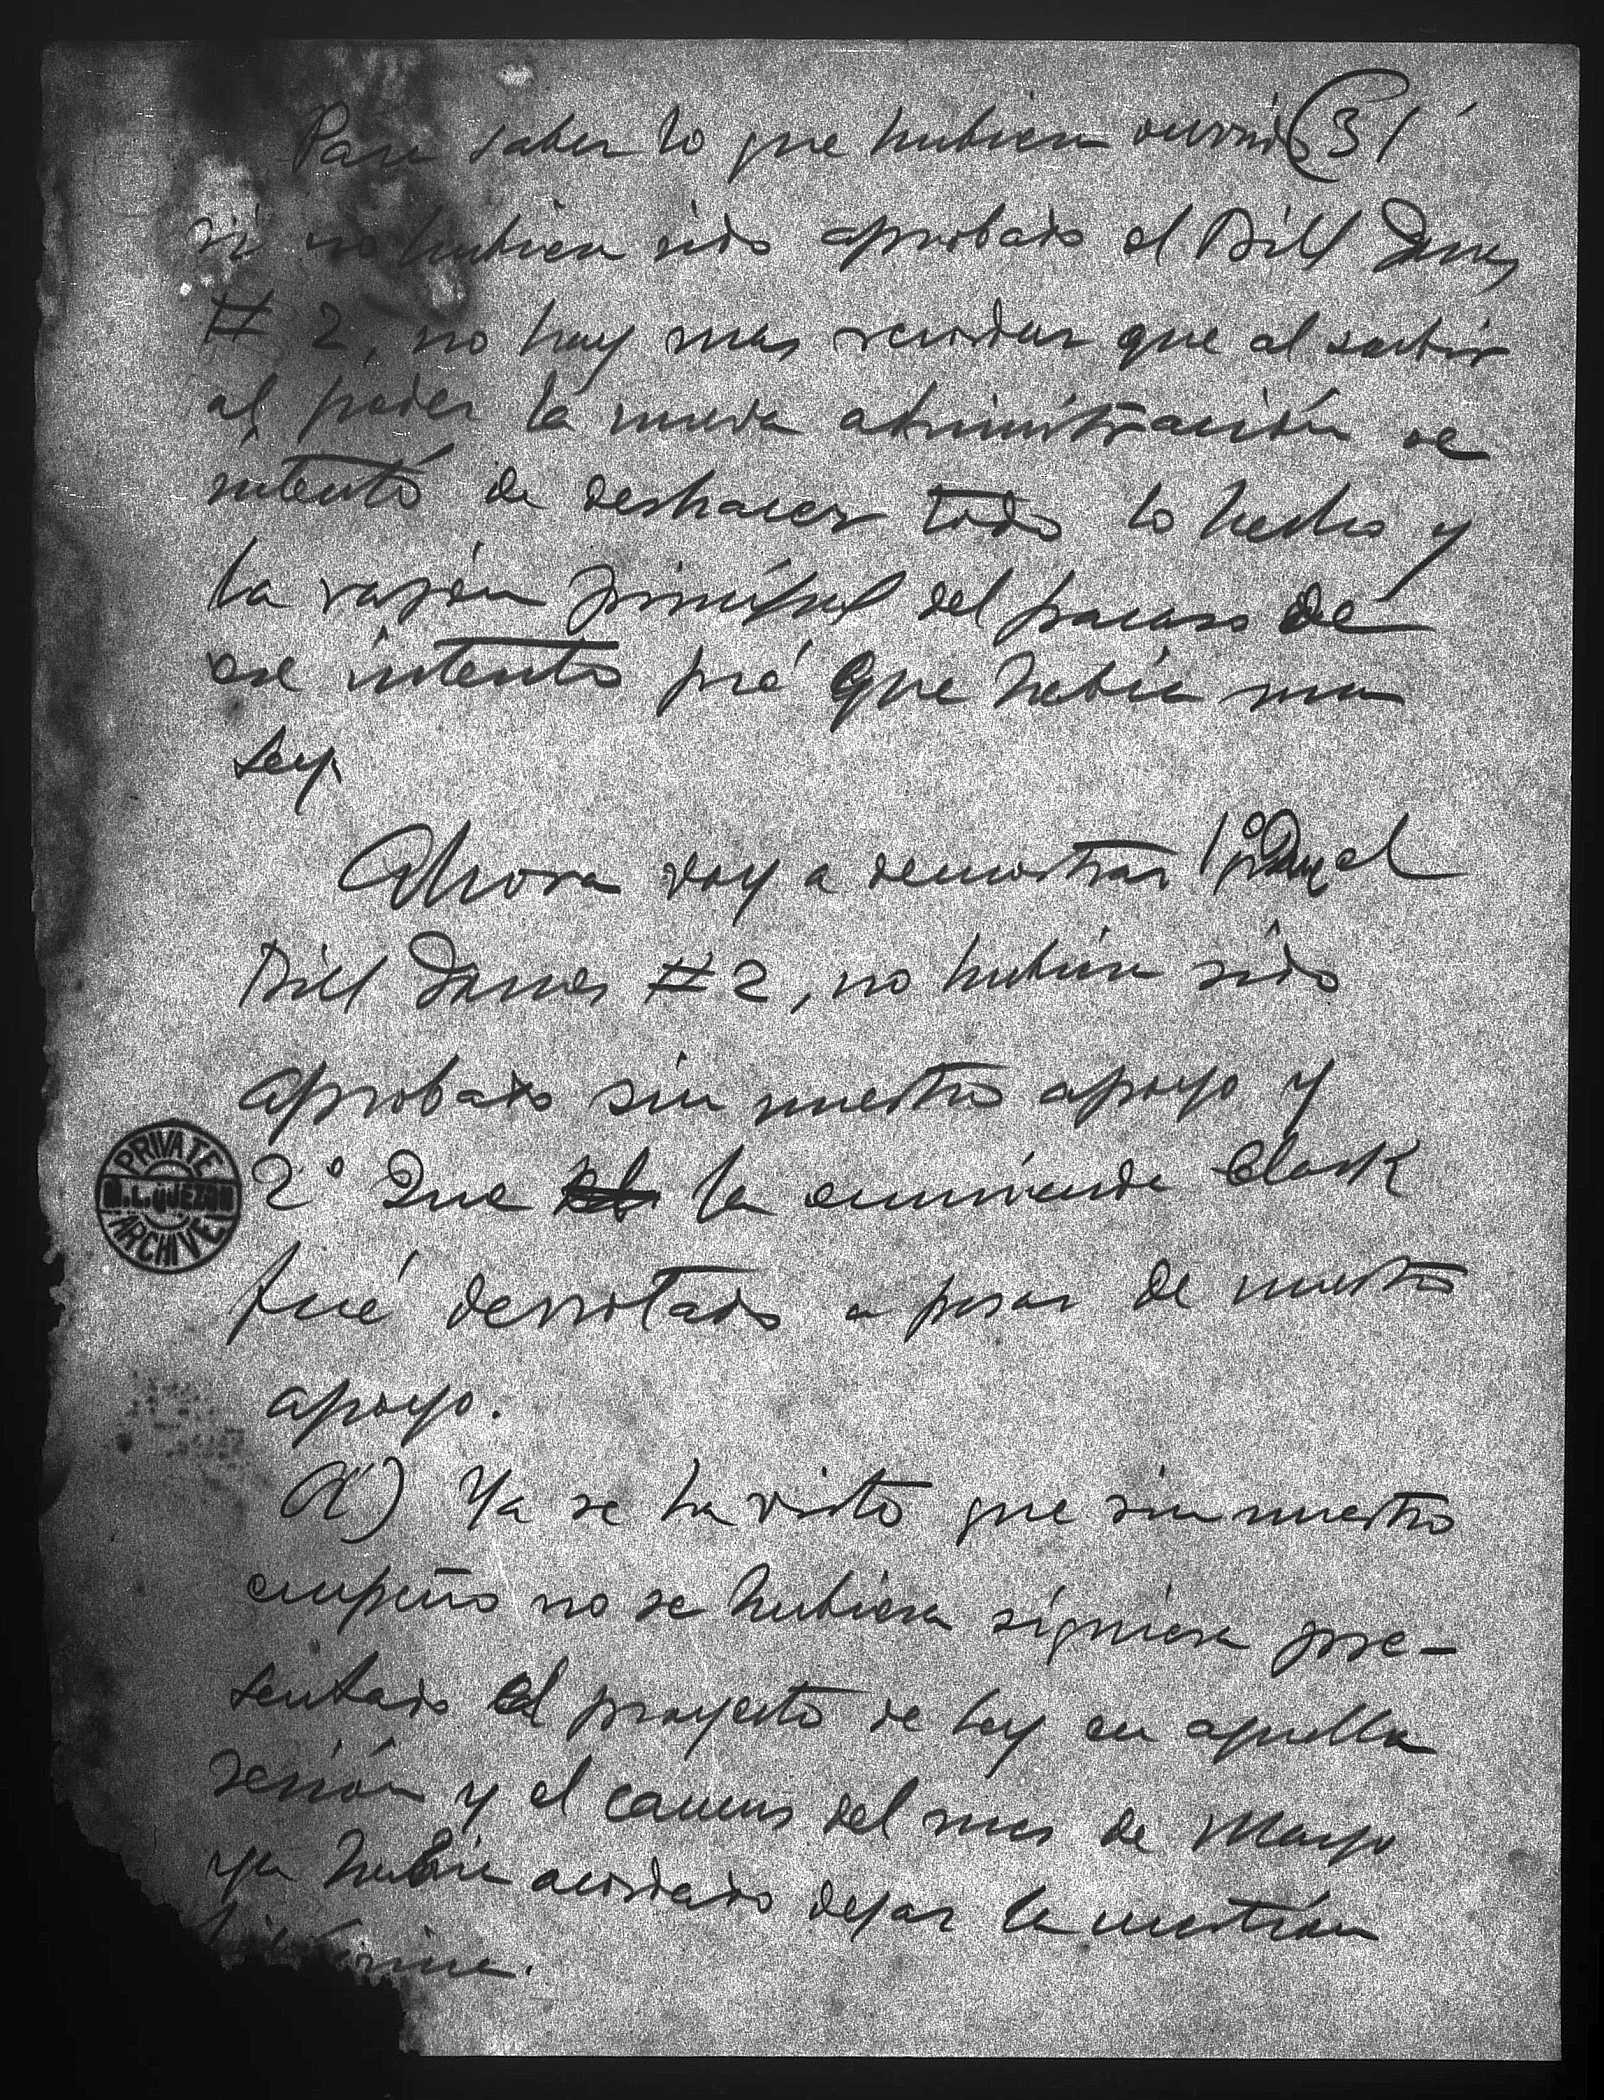 Para saber lo que hubiera ocurrido (31
si no hubiera sido aprobado el Bill Jones
# 2, no hay mas recordar que al subir
al poder la nueva administración se
intentó de deshacer todo lo hecho y
la razón principal del fracaso de
ese intento fué que había una
ley.
Ahora voy a demostrar 1º que el
Bill Jones # 2, no hubiera sido
aprobado sin nuestro apoyo y
2º Que la enmienda Clark
fué derrotado a pesar de nuestro
apoyo.
A) Ya se ha visto que sin nuestro
empeño no se hubiera siquiera pre-
sentado el proyecto de ley en aquella
sesión y el caucus del mes de Mayo
ya había acordado dejar la cuestión
PRIVATE
M.L. QUEZON
ARCHIVE